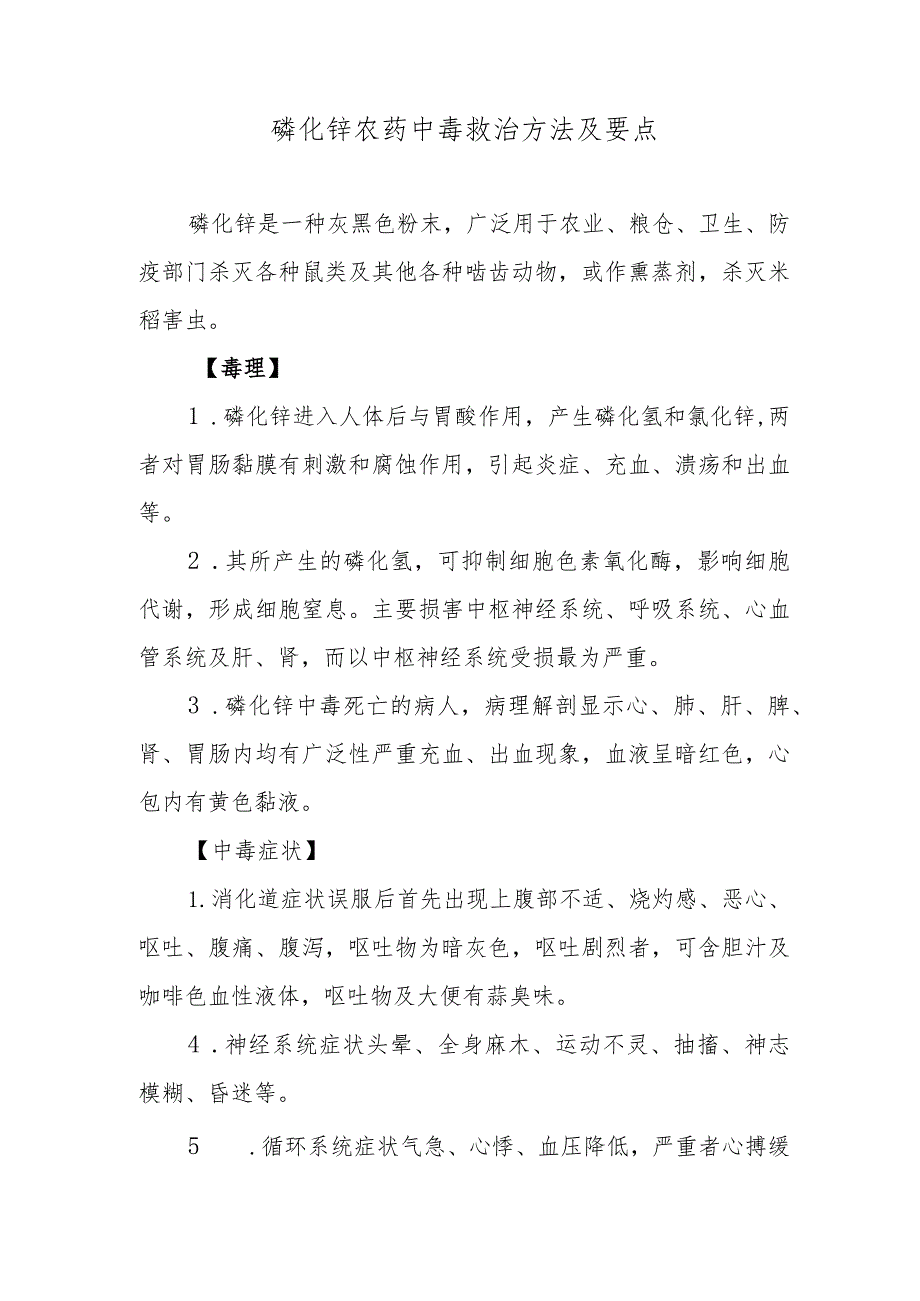 磷化锌农药中毒救治方法及要点
磷化锌是一种灰黑色粉末，广泛用于农业、粮仓、卫生、防
疫部门杀灭各种鼠类及其他各种啮齿动物，或作熏蒸剂，杀灭米
稻害虫。
【毒理】
1 .磷化锌进入人体后与胃酸作用，产生磷化氢和氯化锌,两
者对胃肠黏膜有刺激和腐蚀作用，引起炎症、充血、溃疡和出血
等。
2 .其所产生的磷化氢，可抑制细胞色素氧化酶，影响细胞
代谢，形成细胞窒息。主要损害中枢神经系统、呼吸系统、心血
管系统及肝、肾，而以中枢神经系统受损最为严重。
3 .磷化锌中毒死亡的病人，病理解剖显示心、肺、肝、脾、
肾、胃肠内均有广泛性严重充血、出血现象，血液呈暗红色，心
包内有黄色黏液。
【中毒症状】
1.消化道症状误服后首先出现上腹部不适、烧灼感、恶心、
呕吐、腹痛、腹泻，呕吐物为暗灰色，呕吐剧烈者，可含胆汁及
咖啡色血性液体，呕吐物及大便有蒜臭味。
4 .神经系统症状头晕、全身麻木、运动不灵、抽搐、神志
模糊、昏迷等。
5 .循环系统症状气急、心悸、血压降低，严重者心搏缓